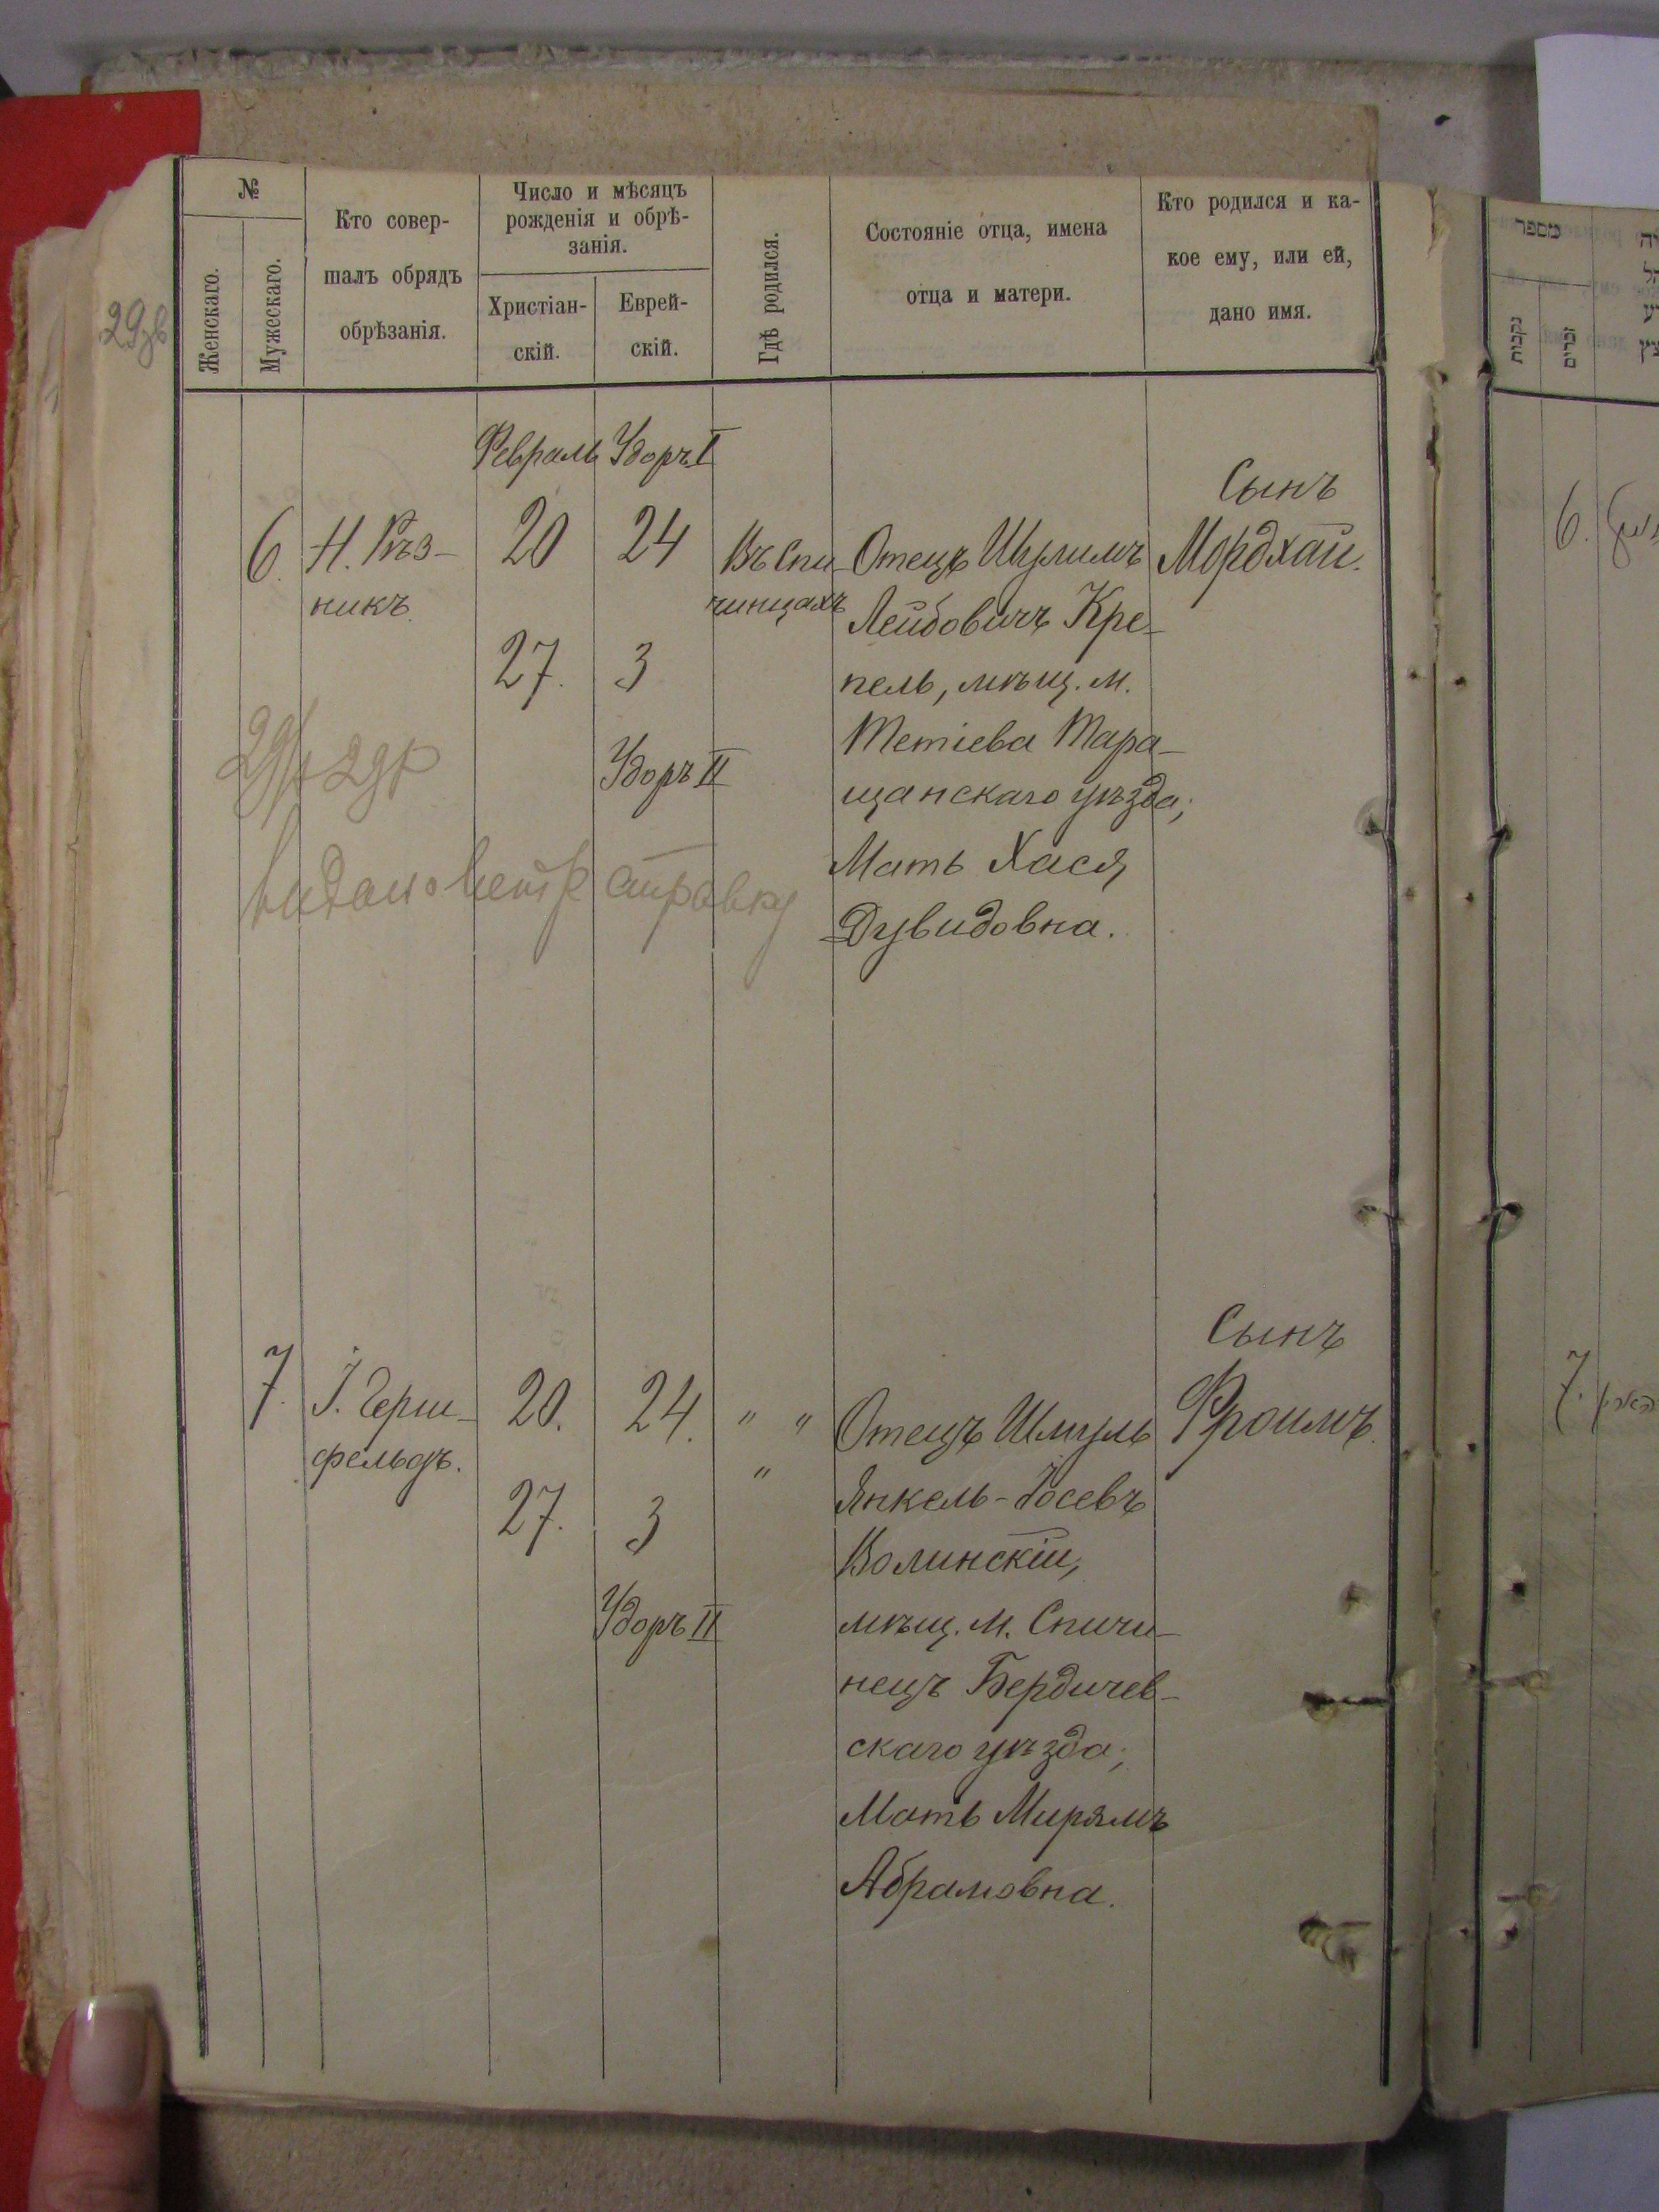 №
Женскаго.
Мужескаго.
Кто совер-
шалъ обрядъ
обрѣзанія.
Число и мѣсяцъ
рожденія и обрѣ-
занія.
Христіан-
скій.
Еврей-
скій.
Гдѣ родился.
Состояніе отца, имена
отца и матери.
Кто родился и ка-
кое ему, или ей,
дано имя.
Февраль Удоръ I
6. Н. Рѣз-
никъ.
20 24
27. 3
Удоръ II
Въ Спи-
чинцахъ
Отецъ Шулимъ
Лейбовичъ Кре-
пель, мѣщ. м.
Тетіева Тара-
щанскаго уѣзда;
Мать Хася
Дувидовна.
Сынъ
Мордхай.
справку
7. І. Герш-
фельдъ.
20. 24.
27. 3
Удоръ II
" "
"
Отецъ Шмуль
Янкель-Іосевъ
Волинскій,
мѣщ. м. Спичи-
нецъ Бердичев-
скаго уѣзда;
Мать Мирямъ
Абрамовна.
Сынъ
Фроимъ.
מספר
נקבות
זכרים
6.
7.